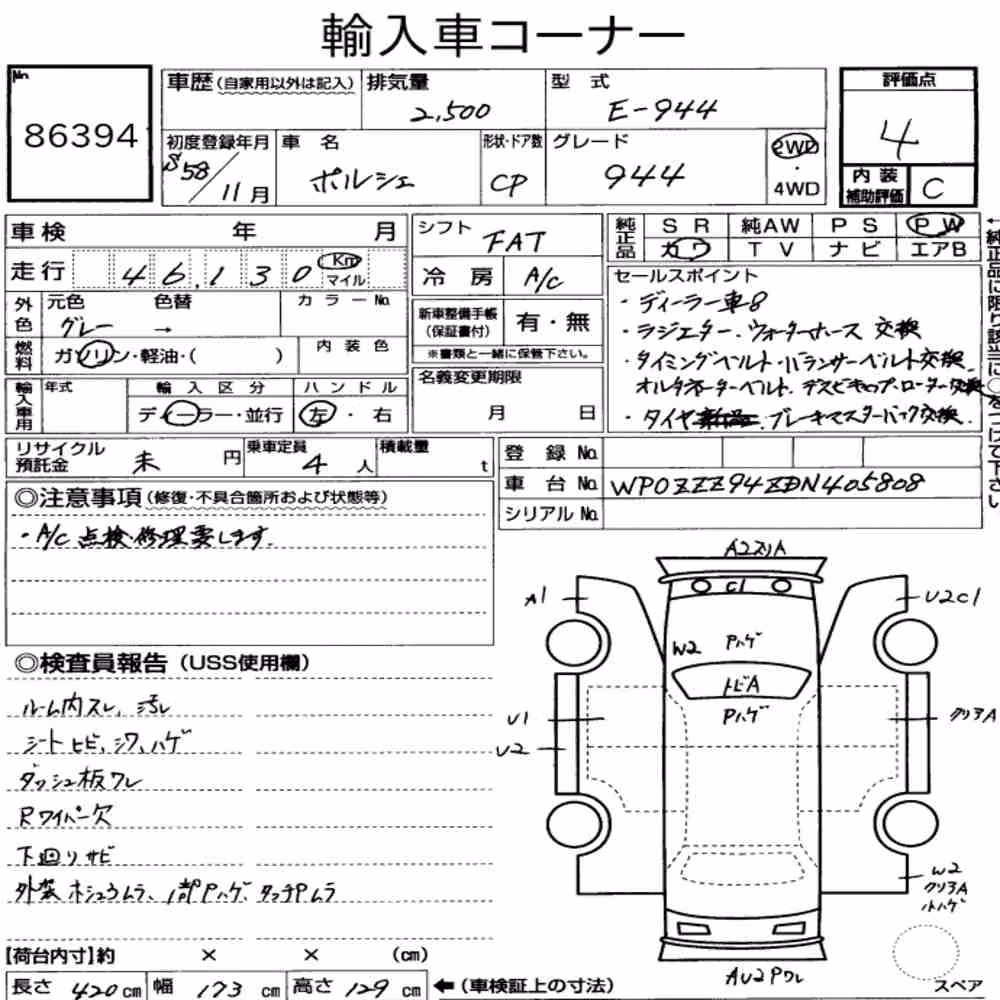 輸入車コーナー
No.
86394
車歴(自家用以外は記入)
排気量
2,500
型 式
E-944
評価点
4
初度登録年月
S58/11月
車 名
ポルシェ
形状・ドア数
CP
グレード
944
2WD
・
4WD
内装
補助評価
C
車検 年 月
シフト
FAT
純正品
SR 純AW PS PW
カワ TV ナビ エアB
走行 46,130 Km
マイル
冷房 A/C
セールスポイント
・ディーラー車8
・ラジエター、ウォーターホース 交換
・タイミングベルト・バランサーベルト交換
オルタネーターベルト、デスビキャップ・ローター交換
・タイヤ ブレーキマスターバック交換
←純正品に限り該当に○をつけて下さい
外色
元色 色替
グレー →
カラーNo.
新車整備手帳
(保証書付)
有・無
※書類と一緒に保管下さい。
燃料
ガソリン・軽油・( )
内装色
名義変更期限
月 日
輸入車用
年式
輸入区分
ディーラー・並行
ハンドル
左・右
リサイクル
預託金
未 円
乗車定員
4人
積載量
t
登録 No.
車台 No. WP0ZZZ94ZDN405808
シリアル No.
◎注意事項(修復・不具合箇所および状態等)
・A/C 点検・修理要します。
◎検査員報告(USS使用欄)
ルーム内スレ、汚レ
シートヒビ、シワ、ハゲ
ダッシュ板ワレ
Rワイパー欠
下廻りサビ
外装ホシュウムラ、1部Pハゲ、タッチPムラ
A2スリA
C1
A1
U2C1
W2 Pハゲ
トビA
Pハゲ
U1
U2
クリアA
W2
クリアA
小ハゲ
AU2Pワレ
スペア
【荷台内寸】約 × × (cm)
長さ 420cm 幅 173 cm 高さ 129 cm ←(車検証上の寸法)